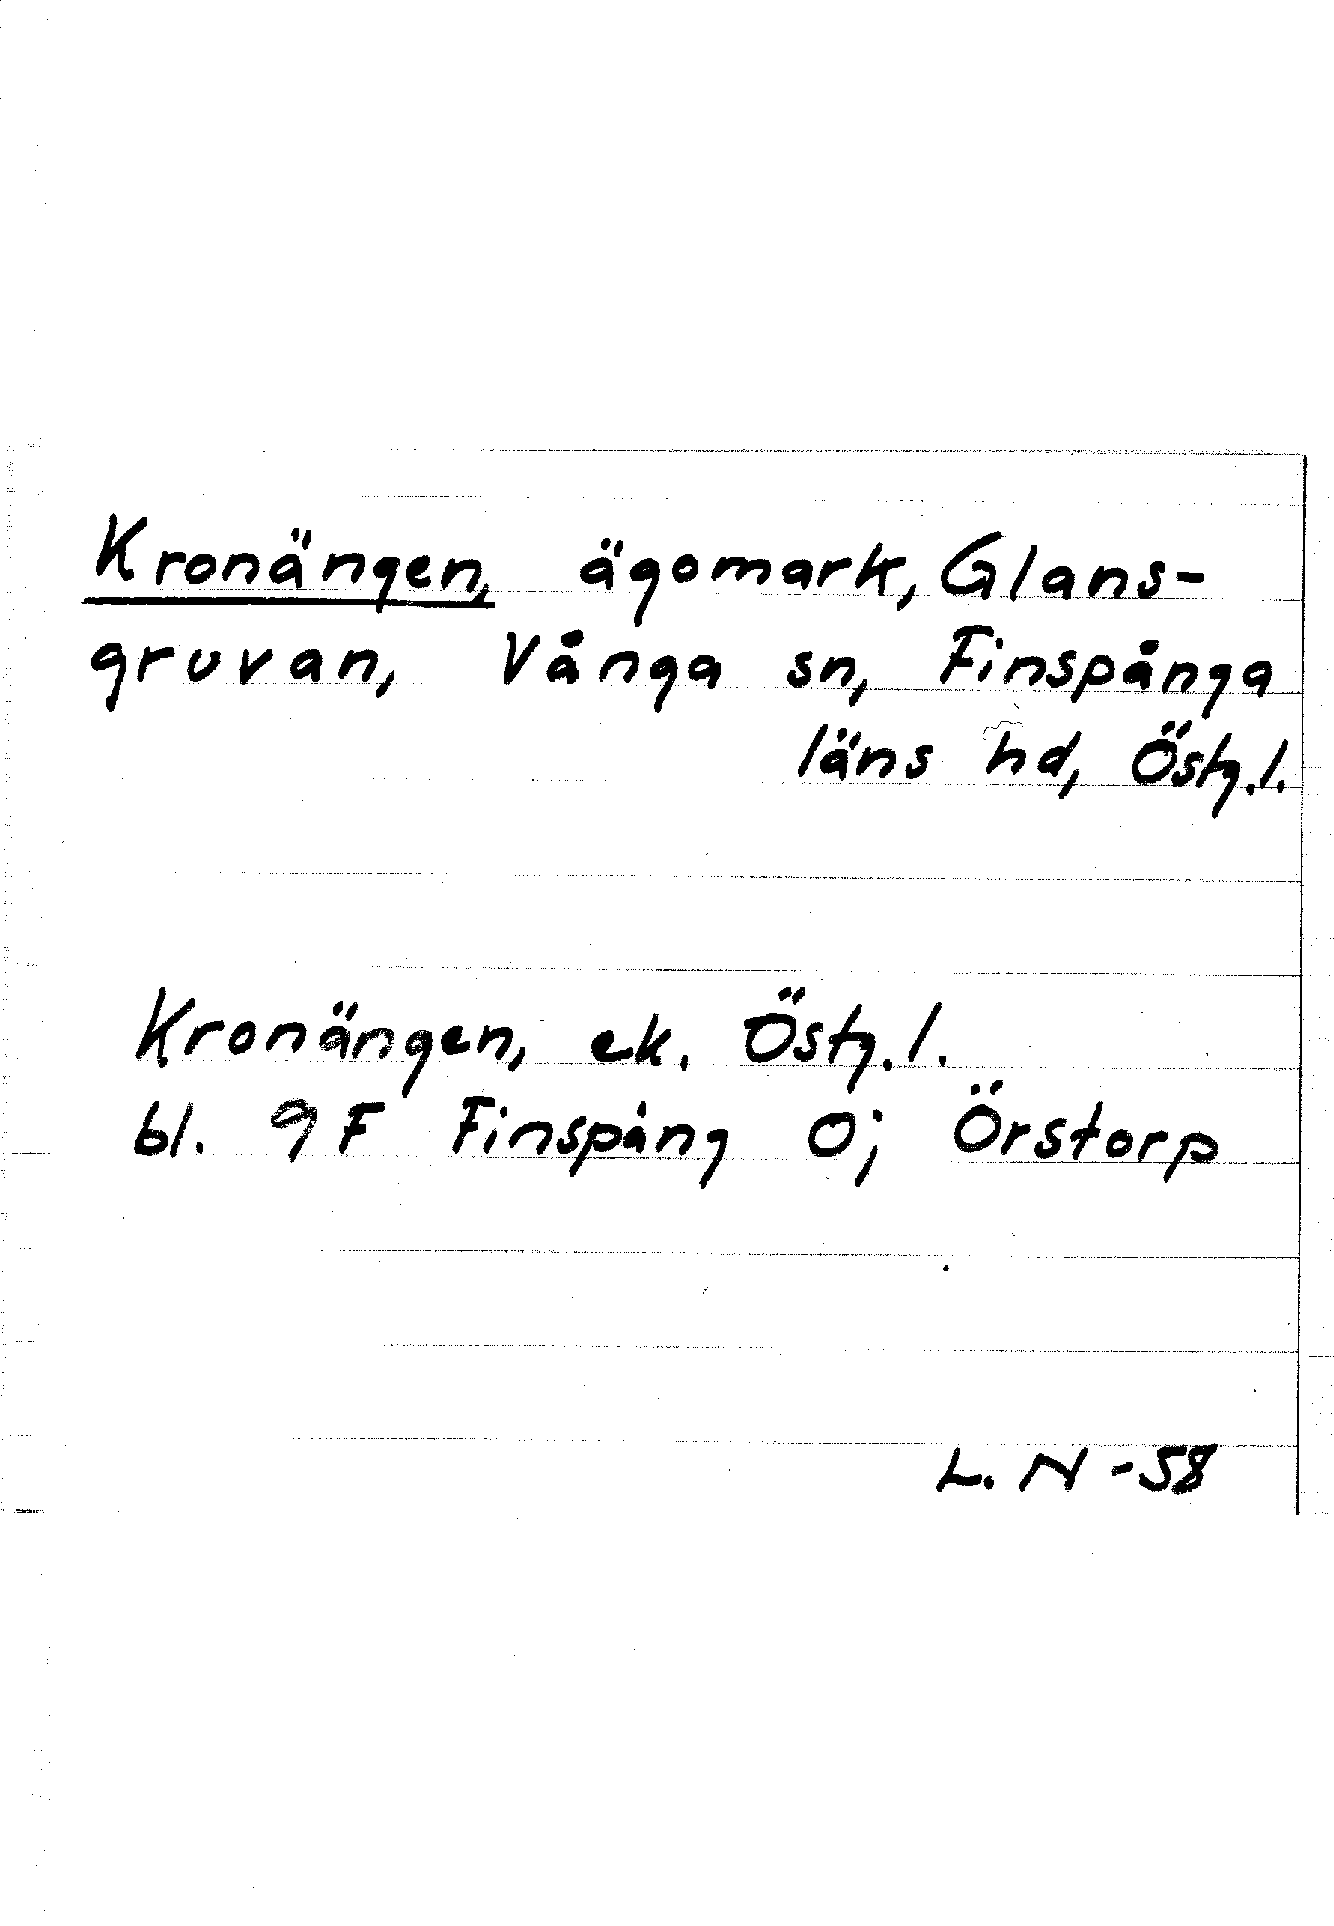 Kronängen, ägomark, Glans-
gruvan, Vånga sn, Finspånga
läns hd, Östg.l.
Kronängen, ek. Östg.l.
bl. 9F Finspång O; Örstorp
L. N -58